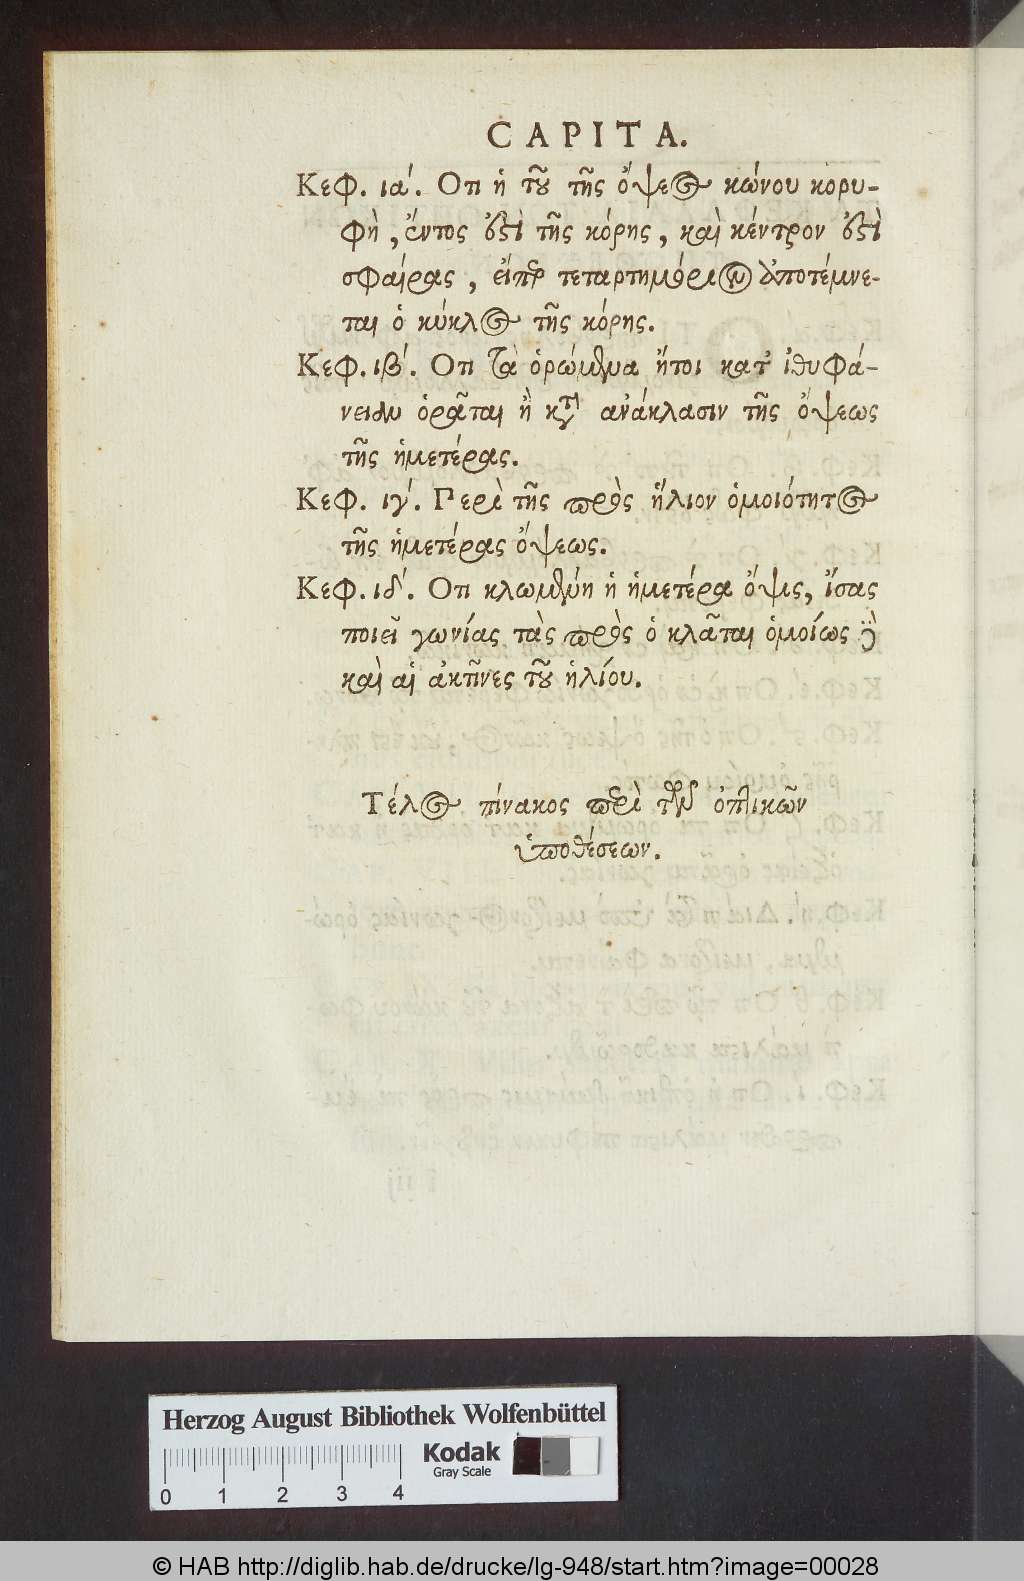 CAPITA.
Κεφ. ια΄. Ὅτι ἡ τοῦ τῆς ὄψεος κώνου κορυ-
φὴ, ἐντὸς ἐστὶ τῆς κόρης, καὶ κέντρον ἐστὶ
σφαίρας, εἴπερ τεταρτημόριον ἀποτέμνε-
ται ὁ κύκλος τῆς κόρης.
Κεφ. ιβ΄. Ὅτι τὰ ὁρώμενα ἤτοι κατ' ἰθυφά-
νειαν ὁρᾶται ἢ κατὰ ἀνάκλασιν τῆς ὄψεως
τῆς ἡμετέρας.
Κεφ. ιγ΄. Περὶ τῆς πρὸς ἥλιον ὁμοιότητος
τῆς ἡμετέρας ὄψεως.
Κεφ. ιδ΄. Ὅτι κλωμένη ἡ ἡμετέρα ὄψις, ἴσας
ποιεῖ γωνίας τὰς πρὸς ὃ κλᾶται ὁμοίως
καὶ αἱ ἀκτῖνες τοῦ ἡλίου.
Τέλος πίνακος περὶ τῶν ὀπτικῶν
ὑποθέσεων.
Herzog August Bibliothek Wolfenbüttel
Kodak
Gray Scale
0 1 2 3 4
© HAB http://diglib.hab.de/drucke/lg-948/start.htm?image=00028